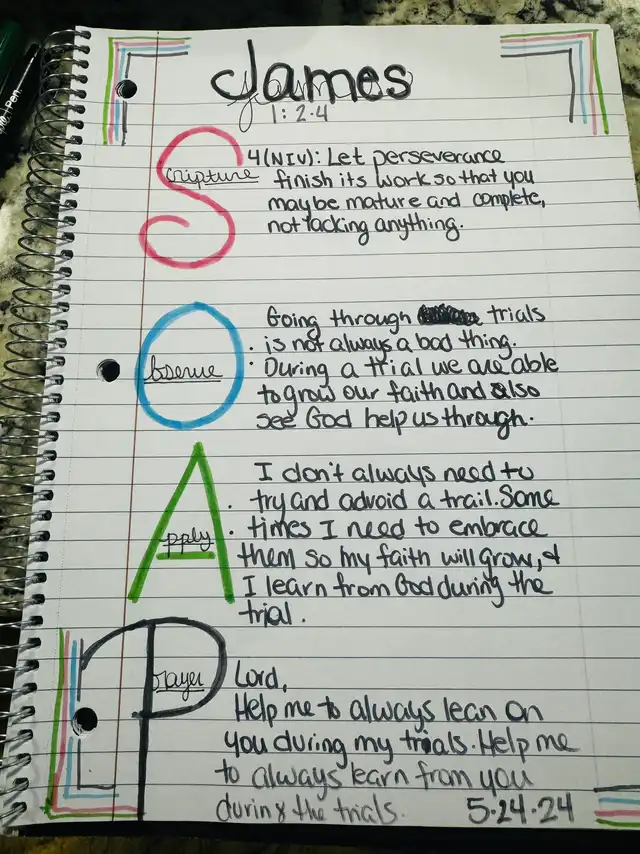 Pen
James
1:2-4
Scripture
4(NIV): Let perseverance
finish its work so that you
maybe mature and complete,
not lacking anything.
Observe
Going through trials
is not always a bad thing.
During a trial we are able
to grow our faith and also
see God help us through.
Apply
I don't always need to
try and advoid a trail. Some
times I need to embrace
them so my faith will grow, &
I learn from God during the
trial.
Prayer
Lord,
Help me to always lean on
you during my trials. Help me
to always learn from you
during the trials. 5.24.24